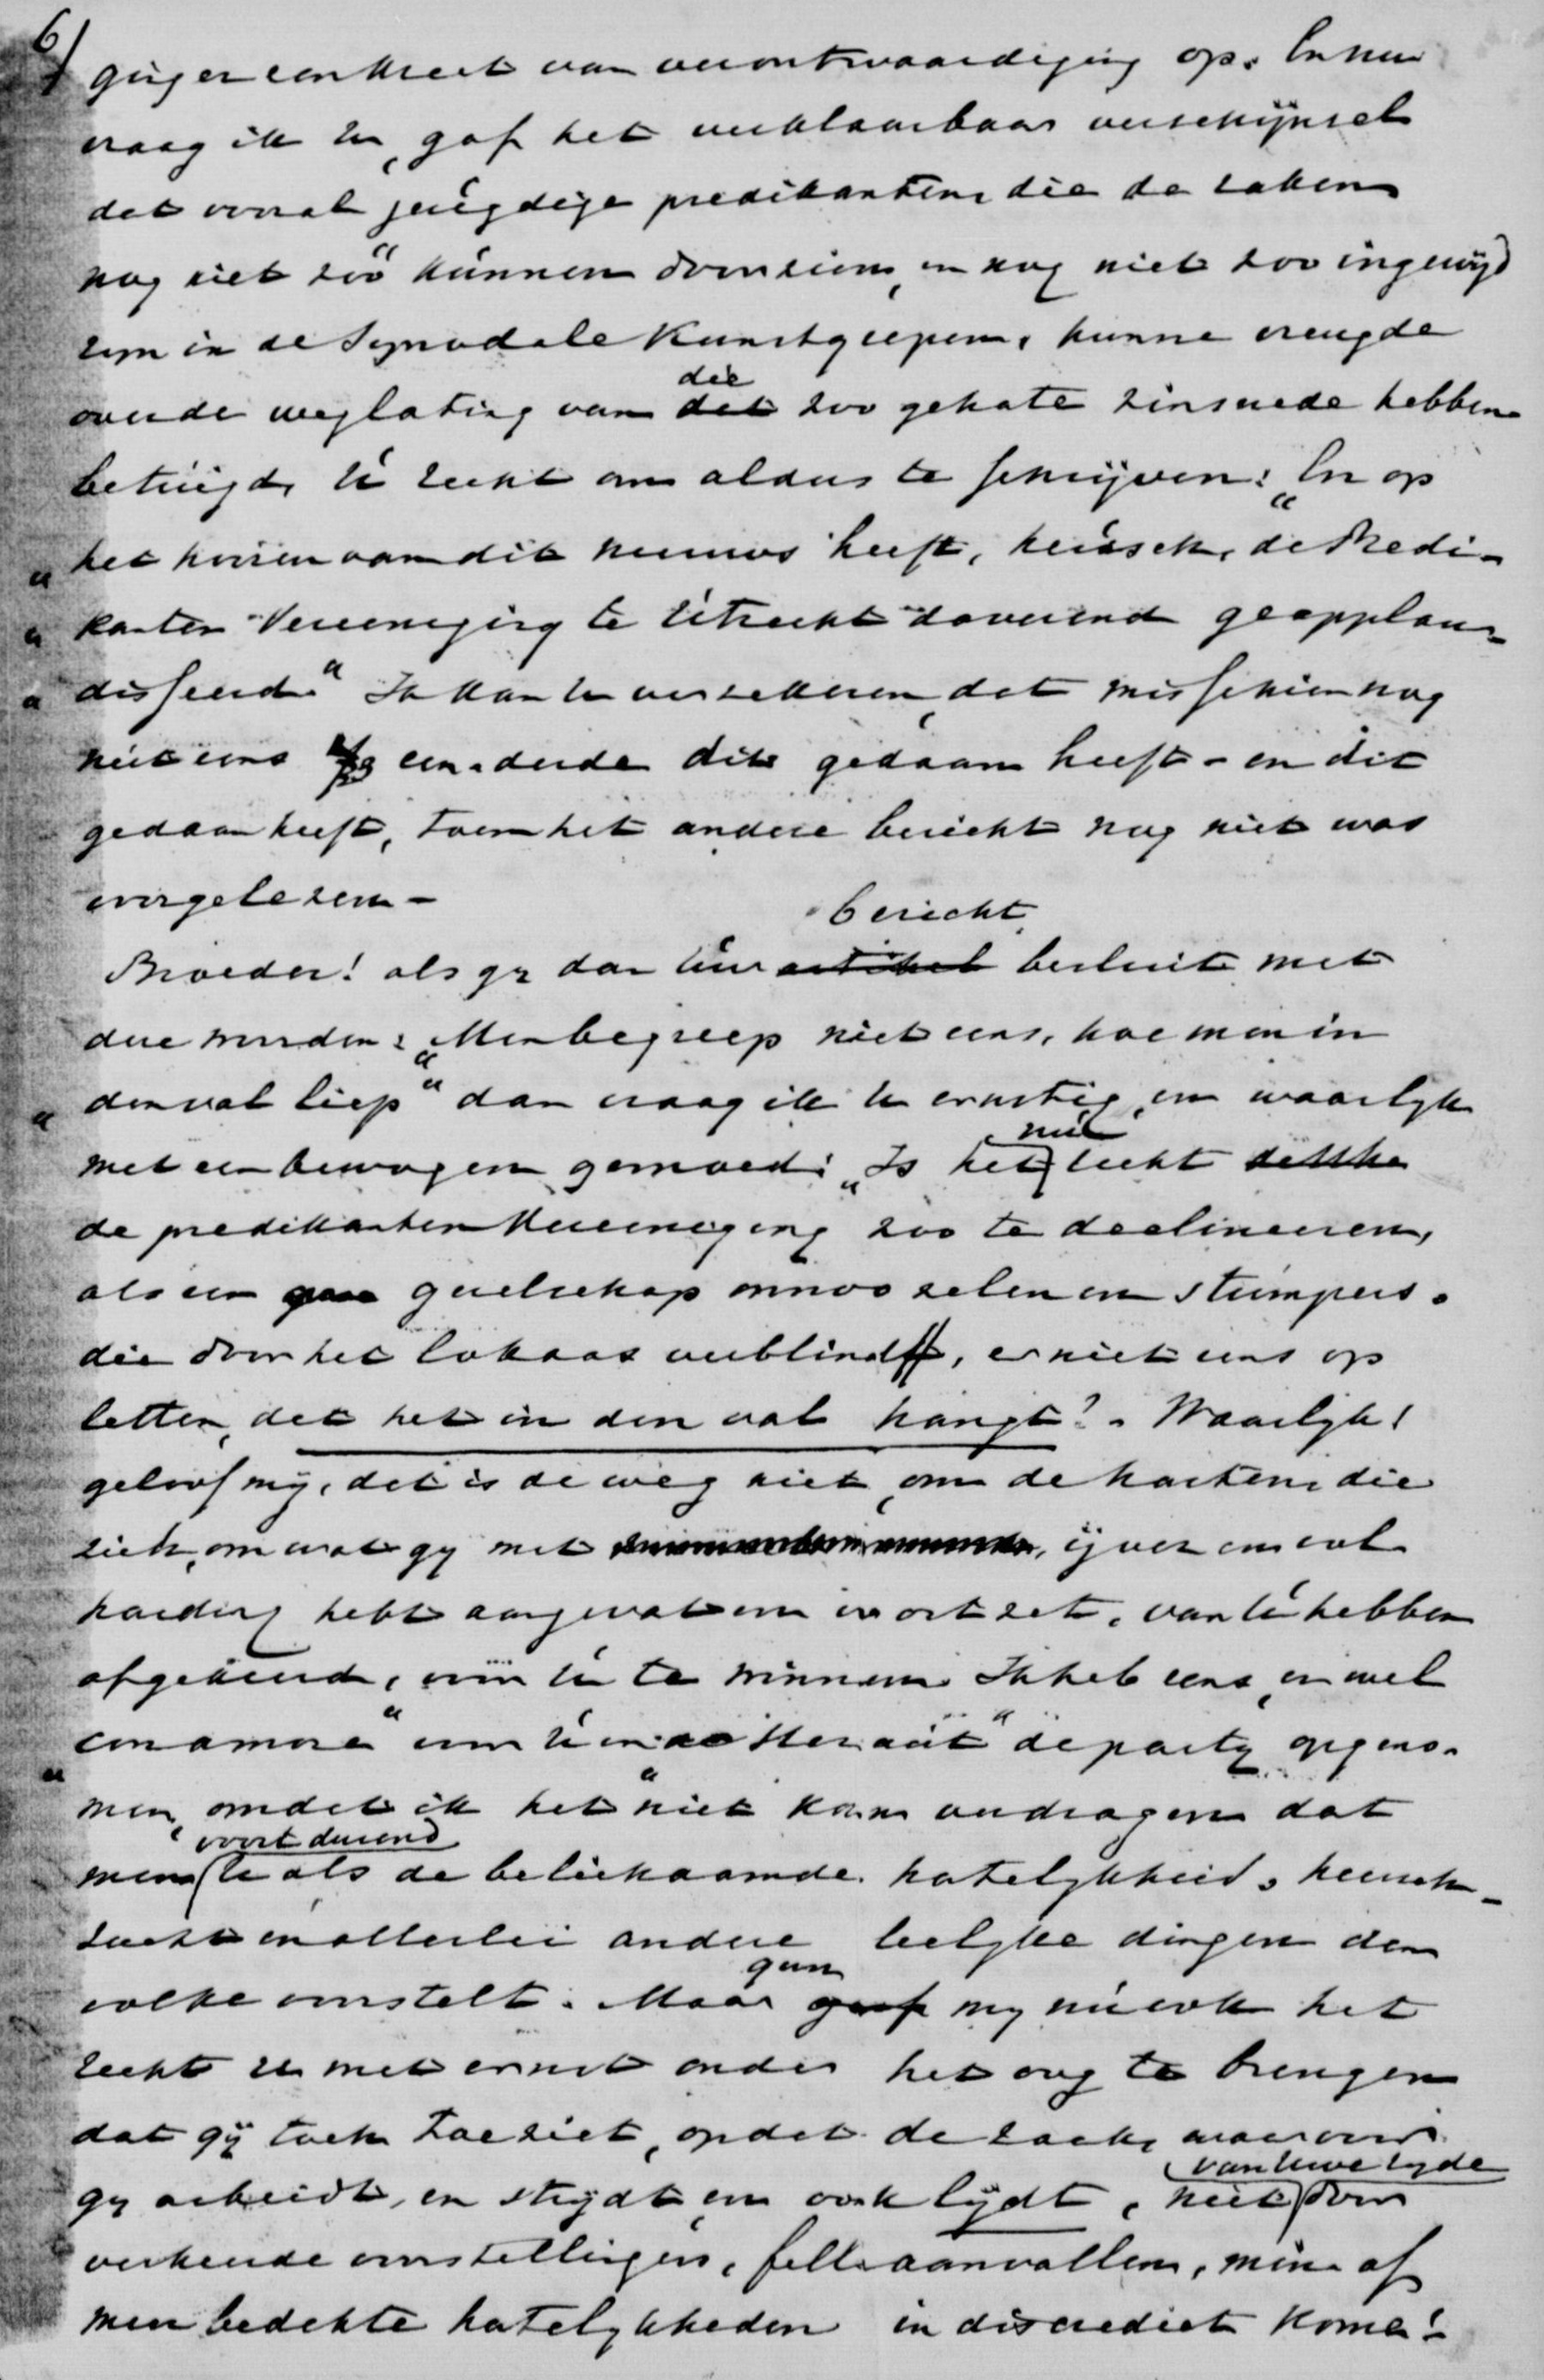 6/
ging er een kreet van verontwaardiging op. En nu
vraag ik U, gaf het verklaarbaar verschijnsel
dat vooral jeugdige predikanten die de zaken
nog niet zóó kunnen doorzien, en nog niet zoo ingewijd
zijn in de Synodale kunstgrepen, hunne vreugde
over de weglating van die zoo gehate zinsnede hebben
betuigd, U recht om aldus te schrijven: „En op
„het hooren van dit nieuws heeft, heusch, de Predi-
„kanten Vereeniging te Utrecht daverend geapplau-
„disseerd." Ik kan U verzekeren, dat misschien nog
niet eens een derde dit gedaan heeft - en dit
gedaan heeft, toen het andere bericht nog niet was
voorgelezen -
Broeder! als gy dan Uw bericht besluit met
deze woorden: „Men begreep niet eens, hoe men in
„den val liep" dan vraag ik U ernstig, en waarlyk
met een bewogen gemoed: „Is het niet slecht
de predikanten Vereeniging zoo te declineeren,
als een gezelschap onnoozelen en stumpers,
die door het lokaas verblind, er niet eens op
letten, dat het in den val hangt? - Waarlyk!
geloof my, dat is de weg niet, om de harten die
zich, om wat gy met ijver en vol
harding hebt aangevat en voortzet, van U hebben
afgekeerd, voor U te winnen. Ik heb eens, en wel
„con amore" voor U en de Heraut" de party opgeno-
men, omdat ik het niet kan verdragen dat
men U voortdurend als de belichaamde hatelykheid, heersch-
zucht en allerlei andere leelyke dingen den
volke voorstelt. Maar gun my nu ook het
recht U met ernst onder het oog te brengen
dat gij toch toeziet, opdat de zaak, waarvoor
gy arbeidt, en strydt en ook lydt, niet van Uwe zyde door
verkeerde voorstellingen, felle aanvallen, min of
meer bedekte hatelykheden in discrediet kome! -